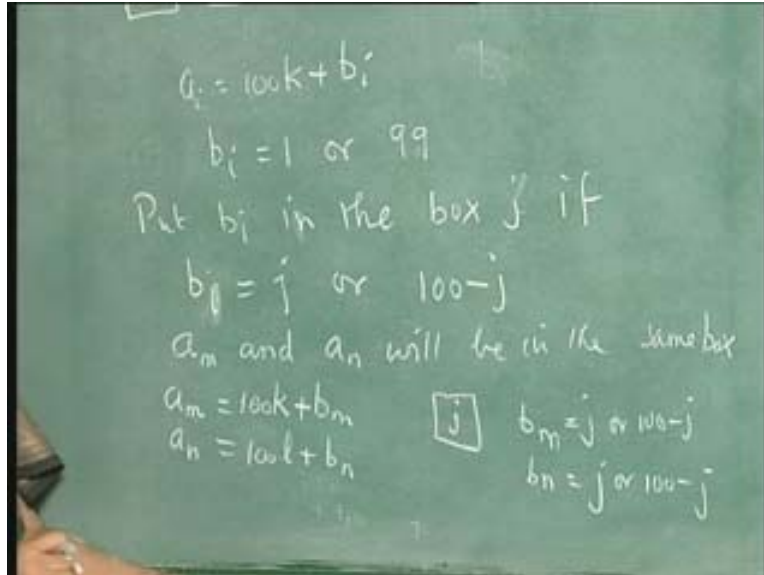 aᵢ = 100k + bᵢ
bᵢ = 1 or 99
Put bᵢ in the box j if
bᵢ = j or 100-j
aₘ and aₙ will be in the same box
aₘ = 100k + bₘ
aₙ = 100l + bₙ
j
bₘ = j or 100-j
bₙ = j or 100-j